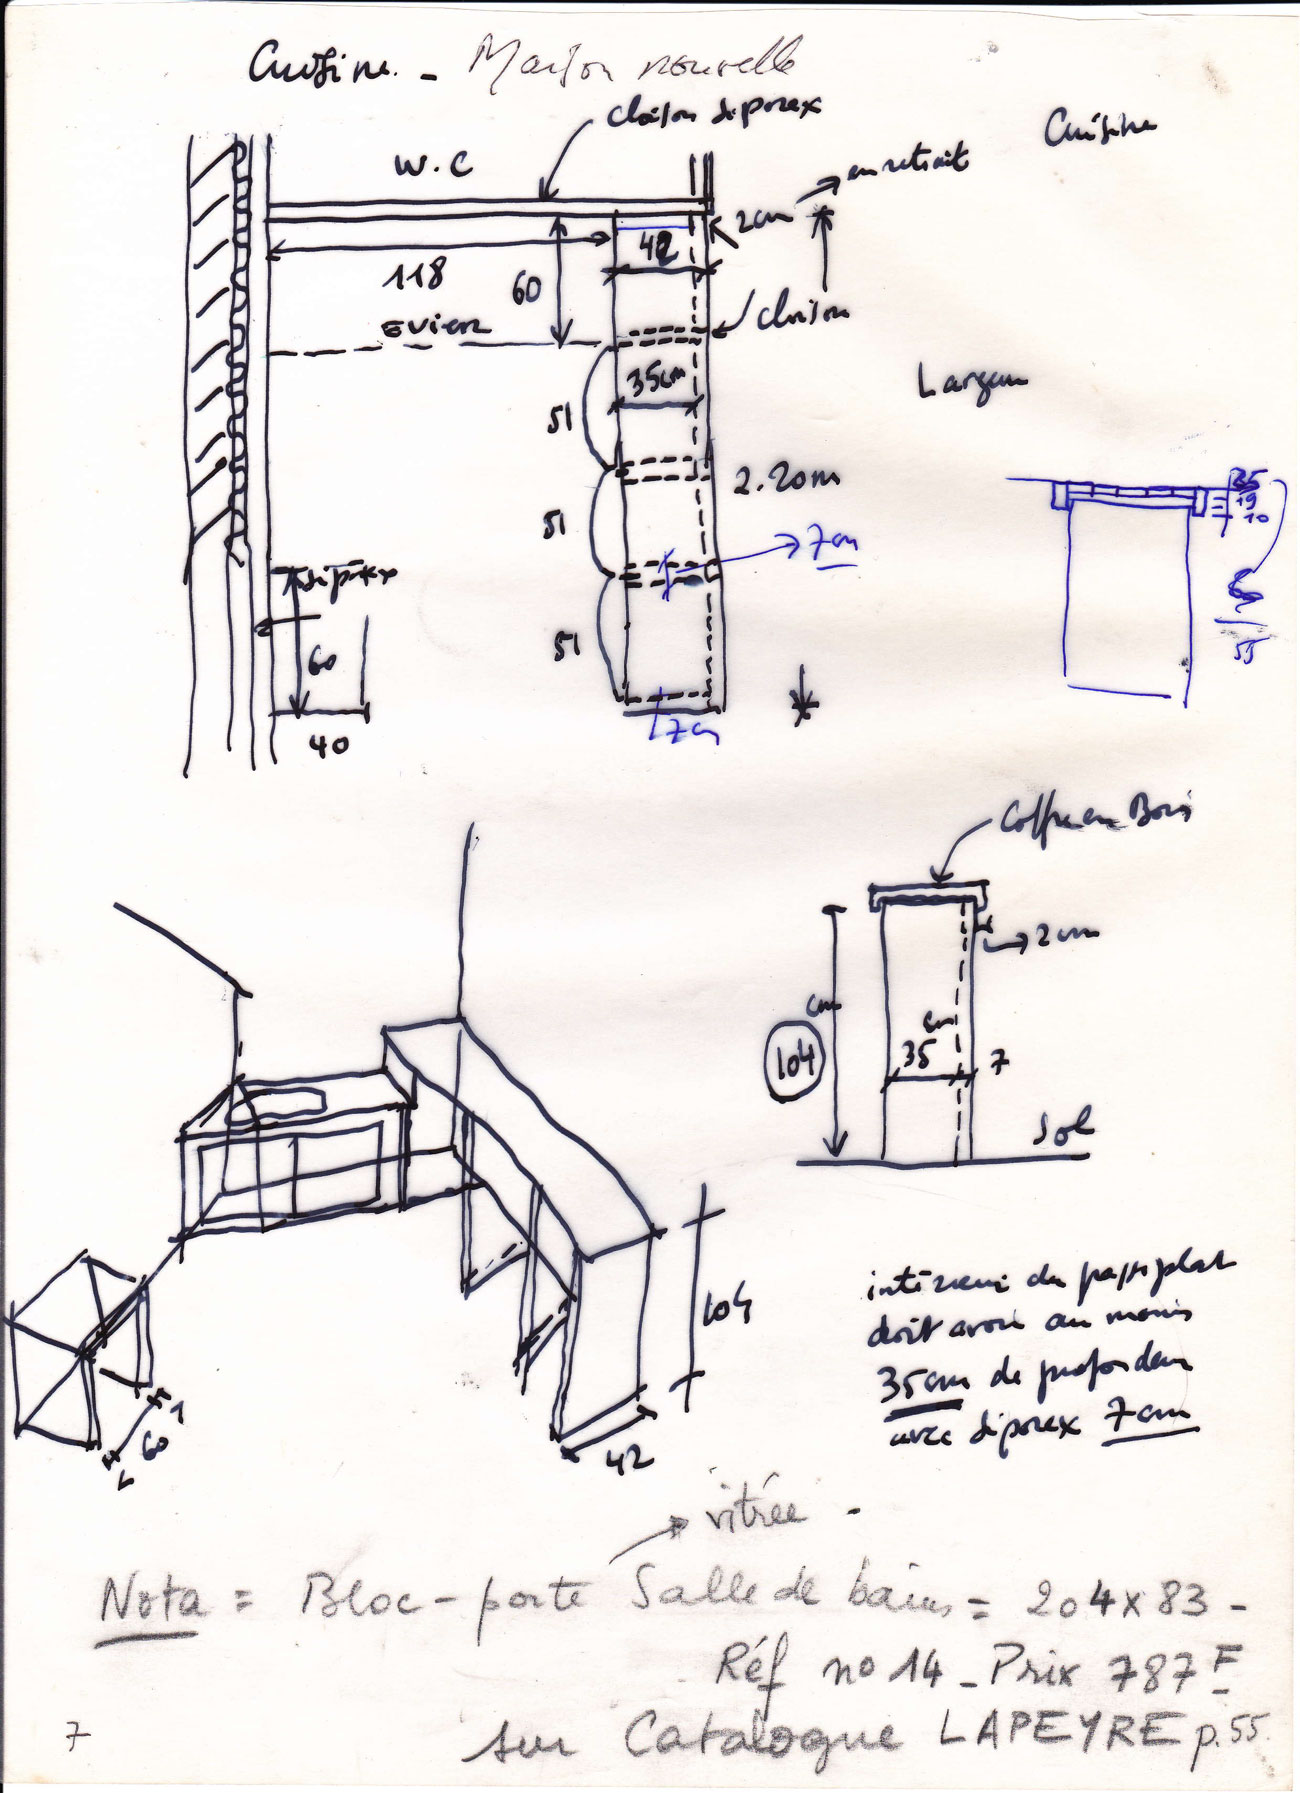 Cuisine - Maison nouvelle
cloison siporex
Cuisine
W.C
en retrait
2cm
42
118
60
Evier
cloison
35cm
51
2.20m
51
7cm
siporex
51
60
40
7cm
35
19
10
55
Coffre en Bois
2cm
cm
104
cm
35
7
Sol
104
42
60
intérieur du passe plat
doit avoir au moins
35cm de profondeur
avec siporex 7cm
vitrée -
Nota = Bloc-porte Salle de bains = 204x83 -
Réf no 14 - Prix 787 F
sur Catalogue LAPEYRE p.55.
7